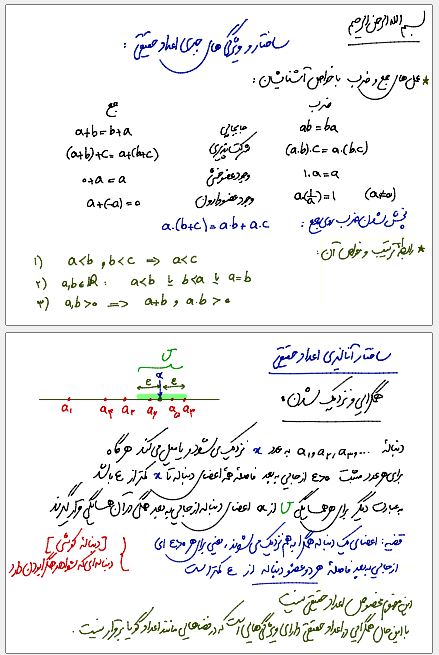 بسم الله الرحمن الرحیم
ساختار و ویژگی های جبری اعداد حقیقی :
★ عمل های جمع و ضرب با خواص آشنایشان :
ضرب جمع
ab = ba جابجایی a+b = b+a
(a.b).c = a.(b.c) شرکت پذیری (a+b)+c = a+(b+c)
1.a = a وجود عضو خنثی 0+a = a
(a≠0) a(1/a) = 1 وجود عضو وارون a+(-a) = 0
پخش شدن ضرب روی جمع : a.(b+c) = a.b + a.c
★ رابطه ترتیب و خواص آن :
1) a<b , b<c ⇒ a<c
2) a,b∈ℝ : a<b یا b<a یا a=b
3) a,b>0 ⇒ a+b , a.b > 0
ساختار آنالیزی اعداد حقیقی
U
ε x ε
a₁ a₂
همگرایی و نزدیک شدن :
دنباله a₁, a₂, a₃, ... به عدد x نزدیک می شود یا میل می کند هرگاه
برای هر عدد مثبت ε>0 از جایی به بعد فاصله همه اعضای دنباله تا x کمتر از ε باشد
به عبارت دیگر برای هر همسایگی U از x اعضای دنباله از جایی به بعد همگی در آن همسایگی قرار گیرند
قضیه : اعضای یک دنباله همگرا به هم نزدیک می شوند، یعنی برای هر ε>0
از جایی به بعد فاصله هر دو عضو دنباله از ε کمتر است
[دنباله کوشی]
دنباله ای که
این مفهوم مخصوص اعداد حقیقی نیست
با این حال همگرایی در اعداد حقیقی دارای ویژگی هایی است که در فضاهایی مانند اعداد گویا برقرار نیست.